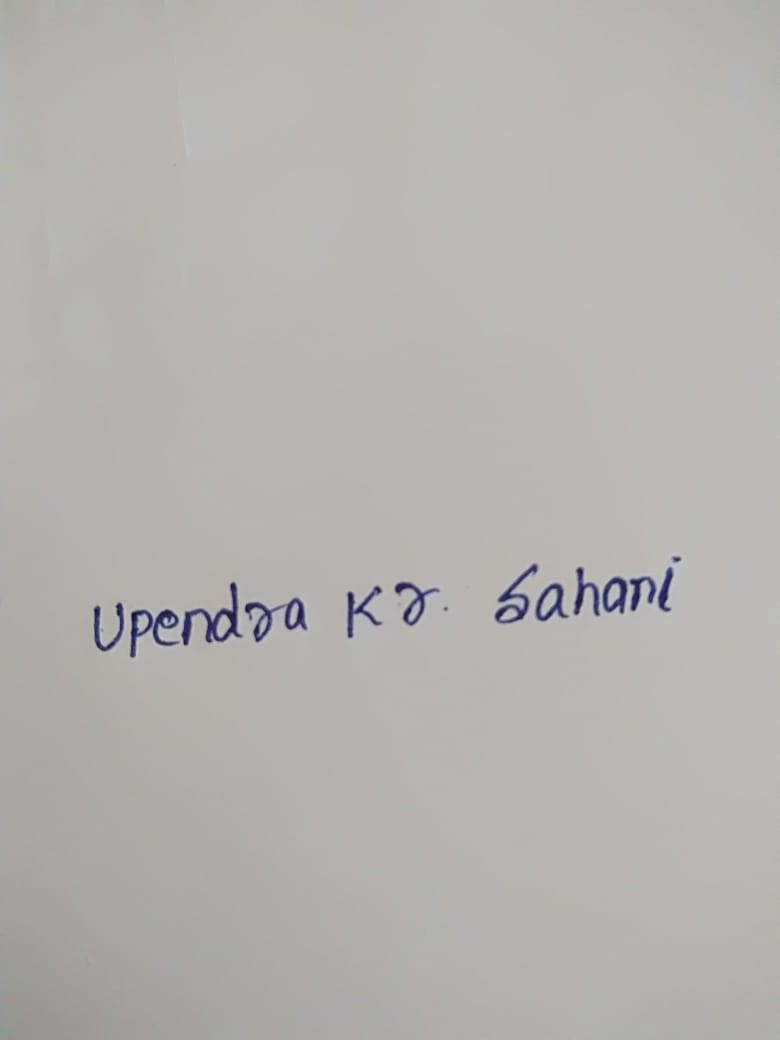 Upendra Kr. Sahani